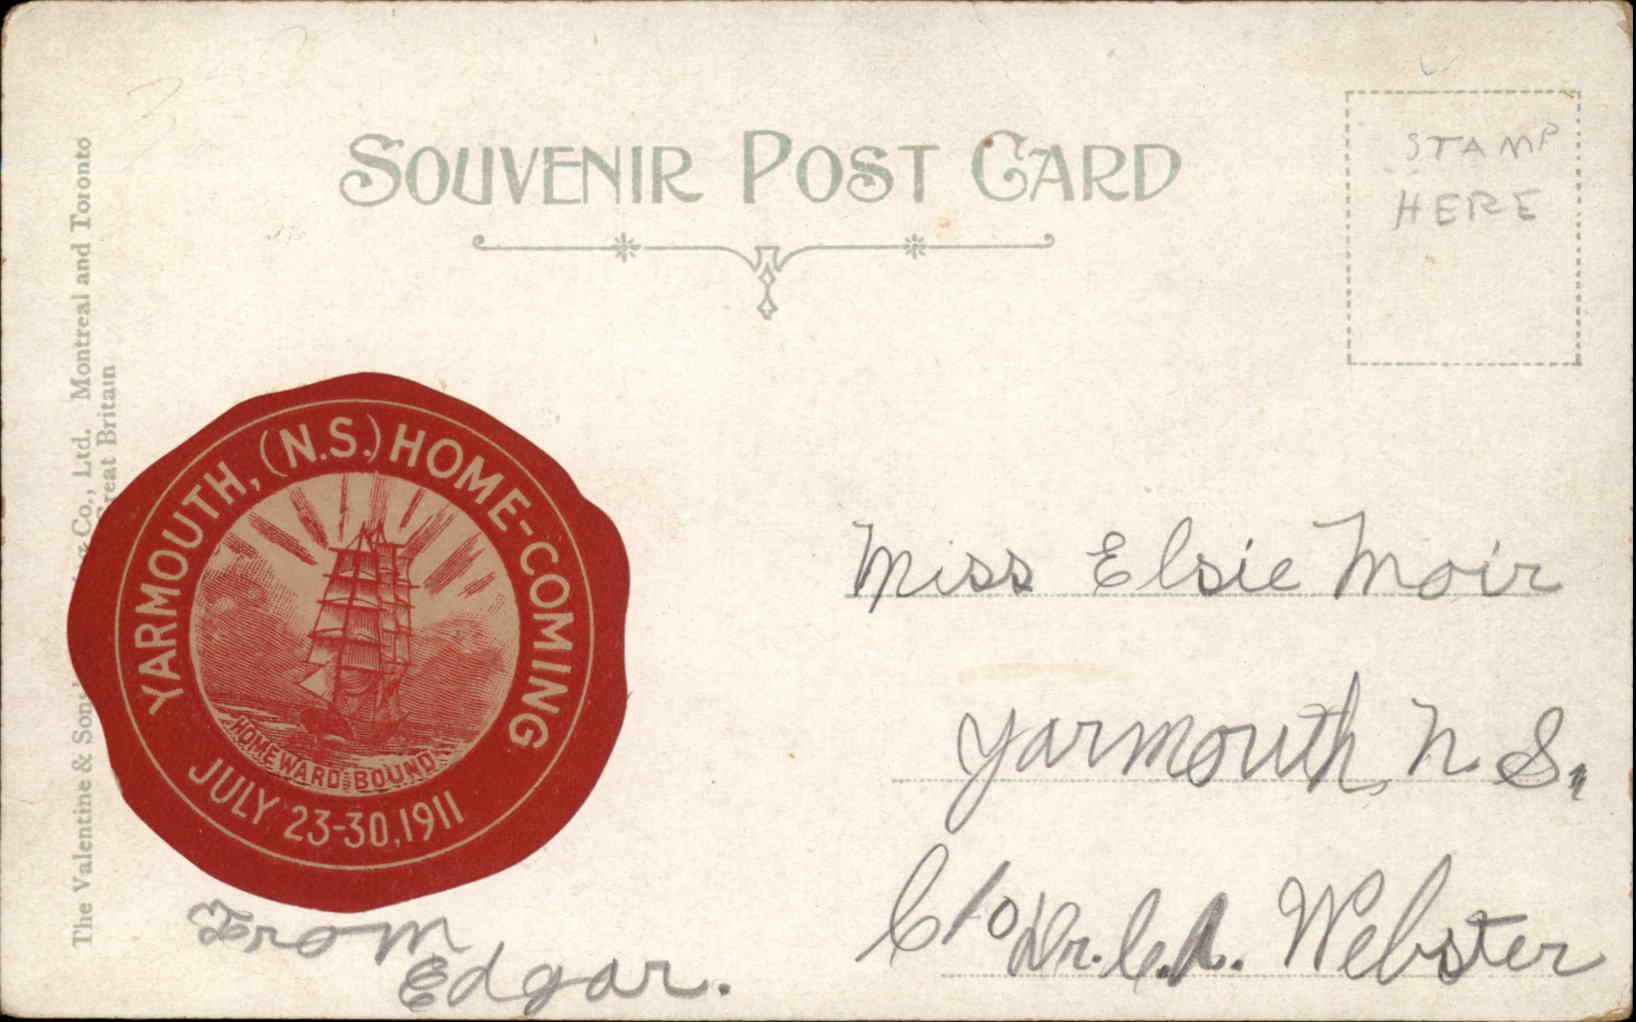 SOUVENIR POST CARD
STAMP
HERE
The Valentine & Sons' Co., Ltd. Montreal and Toronto
Great Britain
YARMOUTH, (N.S.) HOME-COMING
HOMEWARD BOUND
JULY 23-30, 1911
Miss Elsie Moir
Yarmouth, N. S.,
C/o Dr. C.A. Webster
From
Edgar.